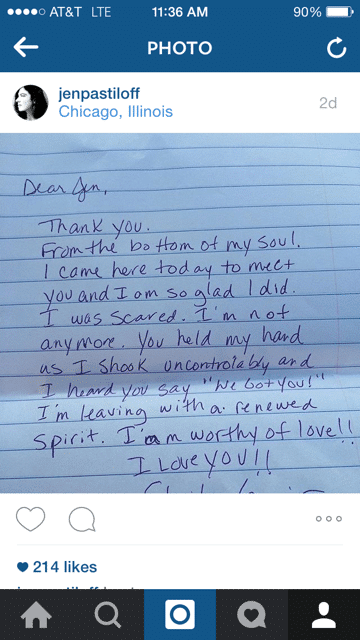 AT&T LTE 11:36 AM 90%
PHOTO
jenpastiloff
Chicago, Illinois
2d
Dear Jen,
Thank you.
From the bottom of my soul.
I came here today to meet
you and I am so glad I did.
I was scared. I'm not
anymore. You held my hand
as I shook uncontrolably and
I heard you say "We Got You!"
I'm leaving with a renewed
spirit. I'm worthy of love!!
I Love YOU!!
214 likes